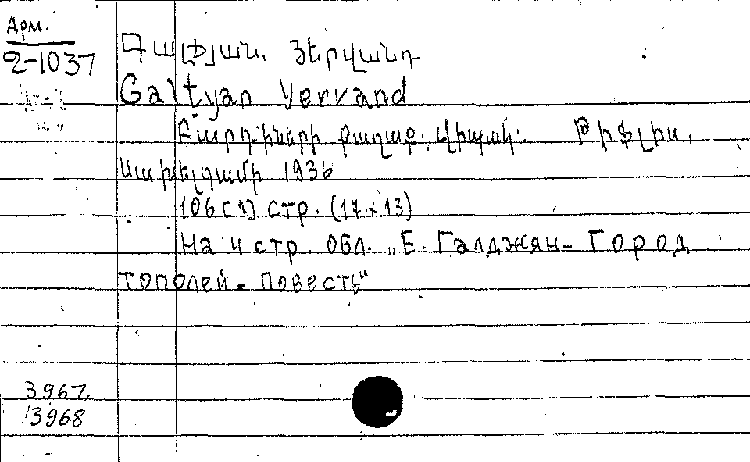 Арм.
2-1037
Գալթյան. Յերվանդ
Galtyan Yervand
Բարդիների քաղաք. վիպակ. Թիֆլիս,
1936
106 [1] стр. (17×13)
На 4 стр. обл. „Е. Галджян- Город
тополей- Повесть"
3967.
3968